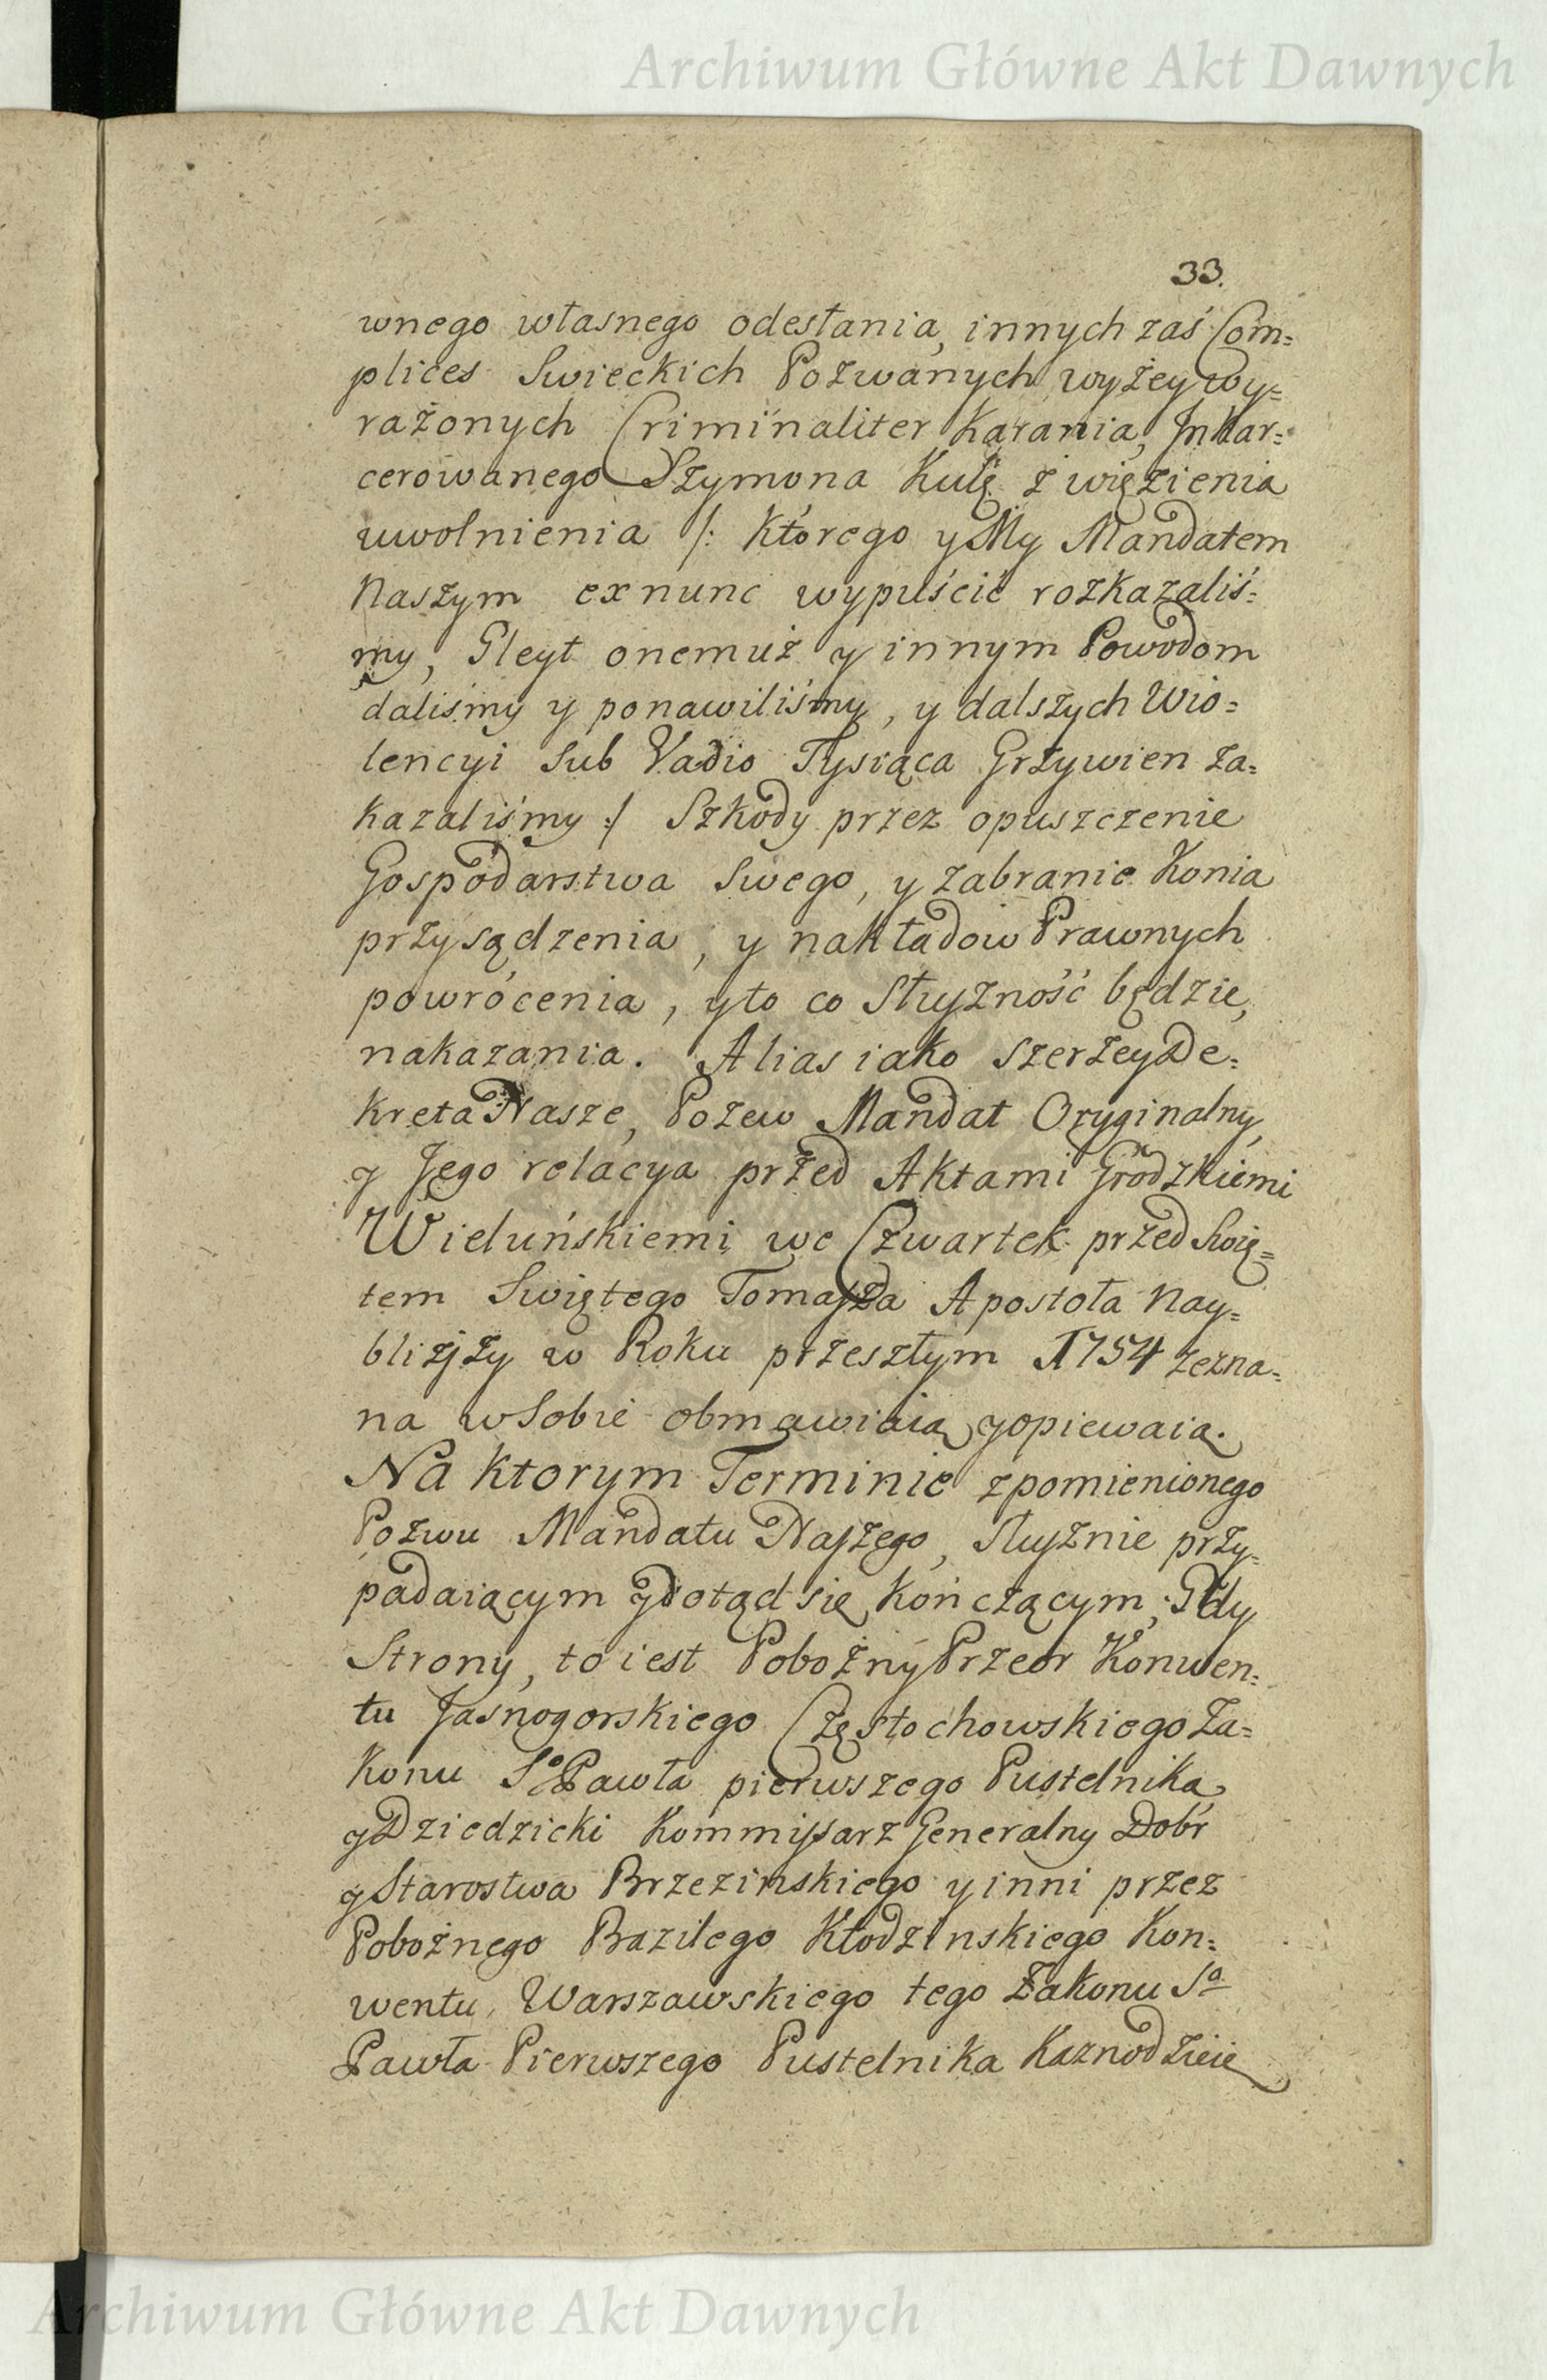 Archiwum Główne Akt Dawnych
33.
wnego własnego odesłania, innych zaś Com=
plices Swieckich Pozwanych wyżey wy=
rażonych Criminaliter Karania, Inkar=
cerowanego Szymona Kulę z więzienia
uwolnienia /: Ktorego y My Mandatem
Naszym ex nunc wypuścić rozkazaliś=
my, Gleyt onemuż y innym Powodom
daliśmy y ponawiliśmy, y dalszych Wio=
lencyi sub Vadio Tysiąca Grzywien za=
kazaliśmy :/ Szkody przez opuszczenie
Gospodarstwa Swego, y zabranie Konia
przysądzenia, y nakładow Prawnych
powrócenia, y to co Słuszność będzie,
nakazania. Alias iako szerzey De=
kreta Nasze, Pozew Mandat Oryginalny,
y Jego relacya przed Aktami Grodzkiemi
Wieluńskiemi we Czwartek przed Swię=
tem Swiętego Tomasza Apostoła Nay=
bliższy w Roku przeszłym 1754 zezna=
na w Sobie obmawiaią y opiewaią.
Na ktorym Terminie z pomienionego
Pozwu Mandatu Naszego, Słusznie przy=
padaiącym y dotąd się kończącym, Gdy
Strony, to iest Pobożny Przeor Konwen=
tu Jasnogorskiego Częstochowskiego Za=
konu Sº Pawła pierwszego Pustelnika,
y Dziedzicki Kommissarz Generalny Dobr
y Starostwa Brzezinskiego y inni przez
Pobożnego Bazilego Kłodzinskiego Kon=
wentu Warszawskiego tego Zakonu Sº
Pawła Pierwszego Pustelnika Kaznodzieię
Archiwum Główne Akt Dawnych